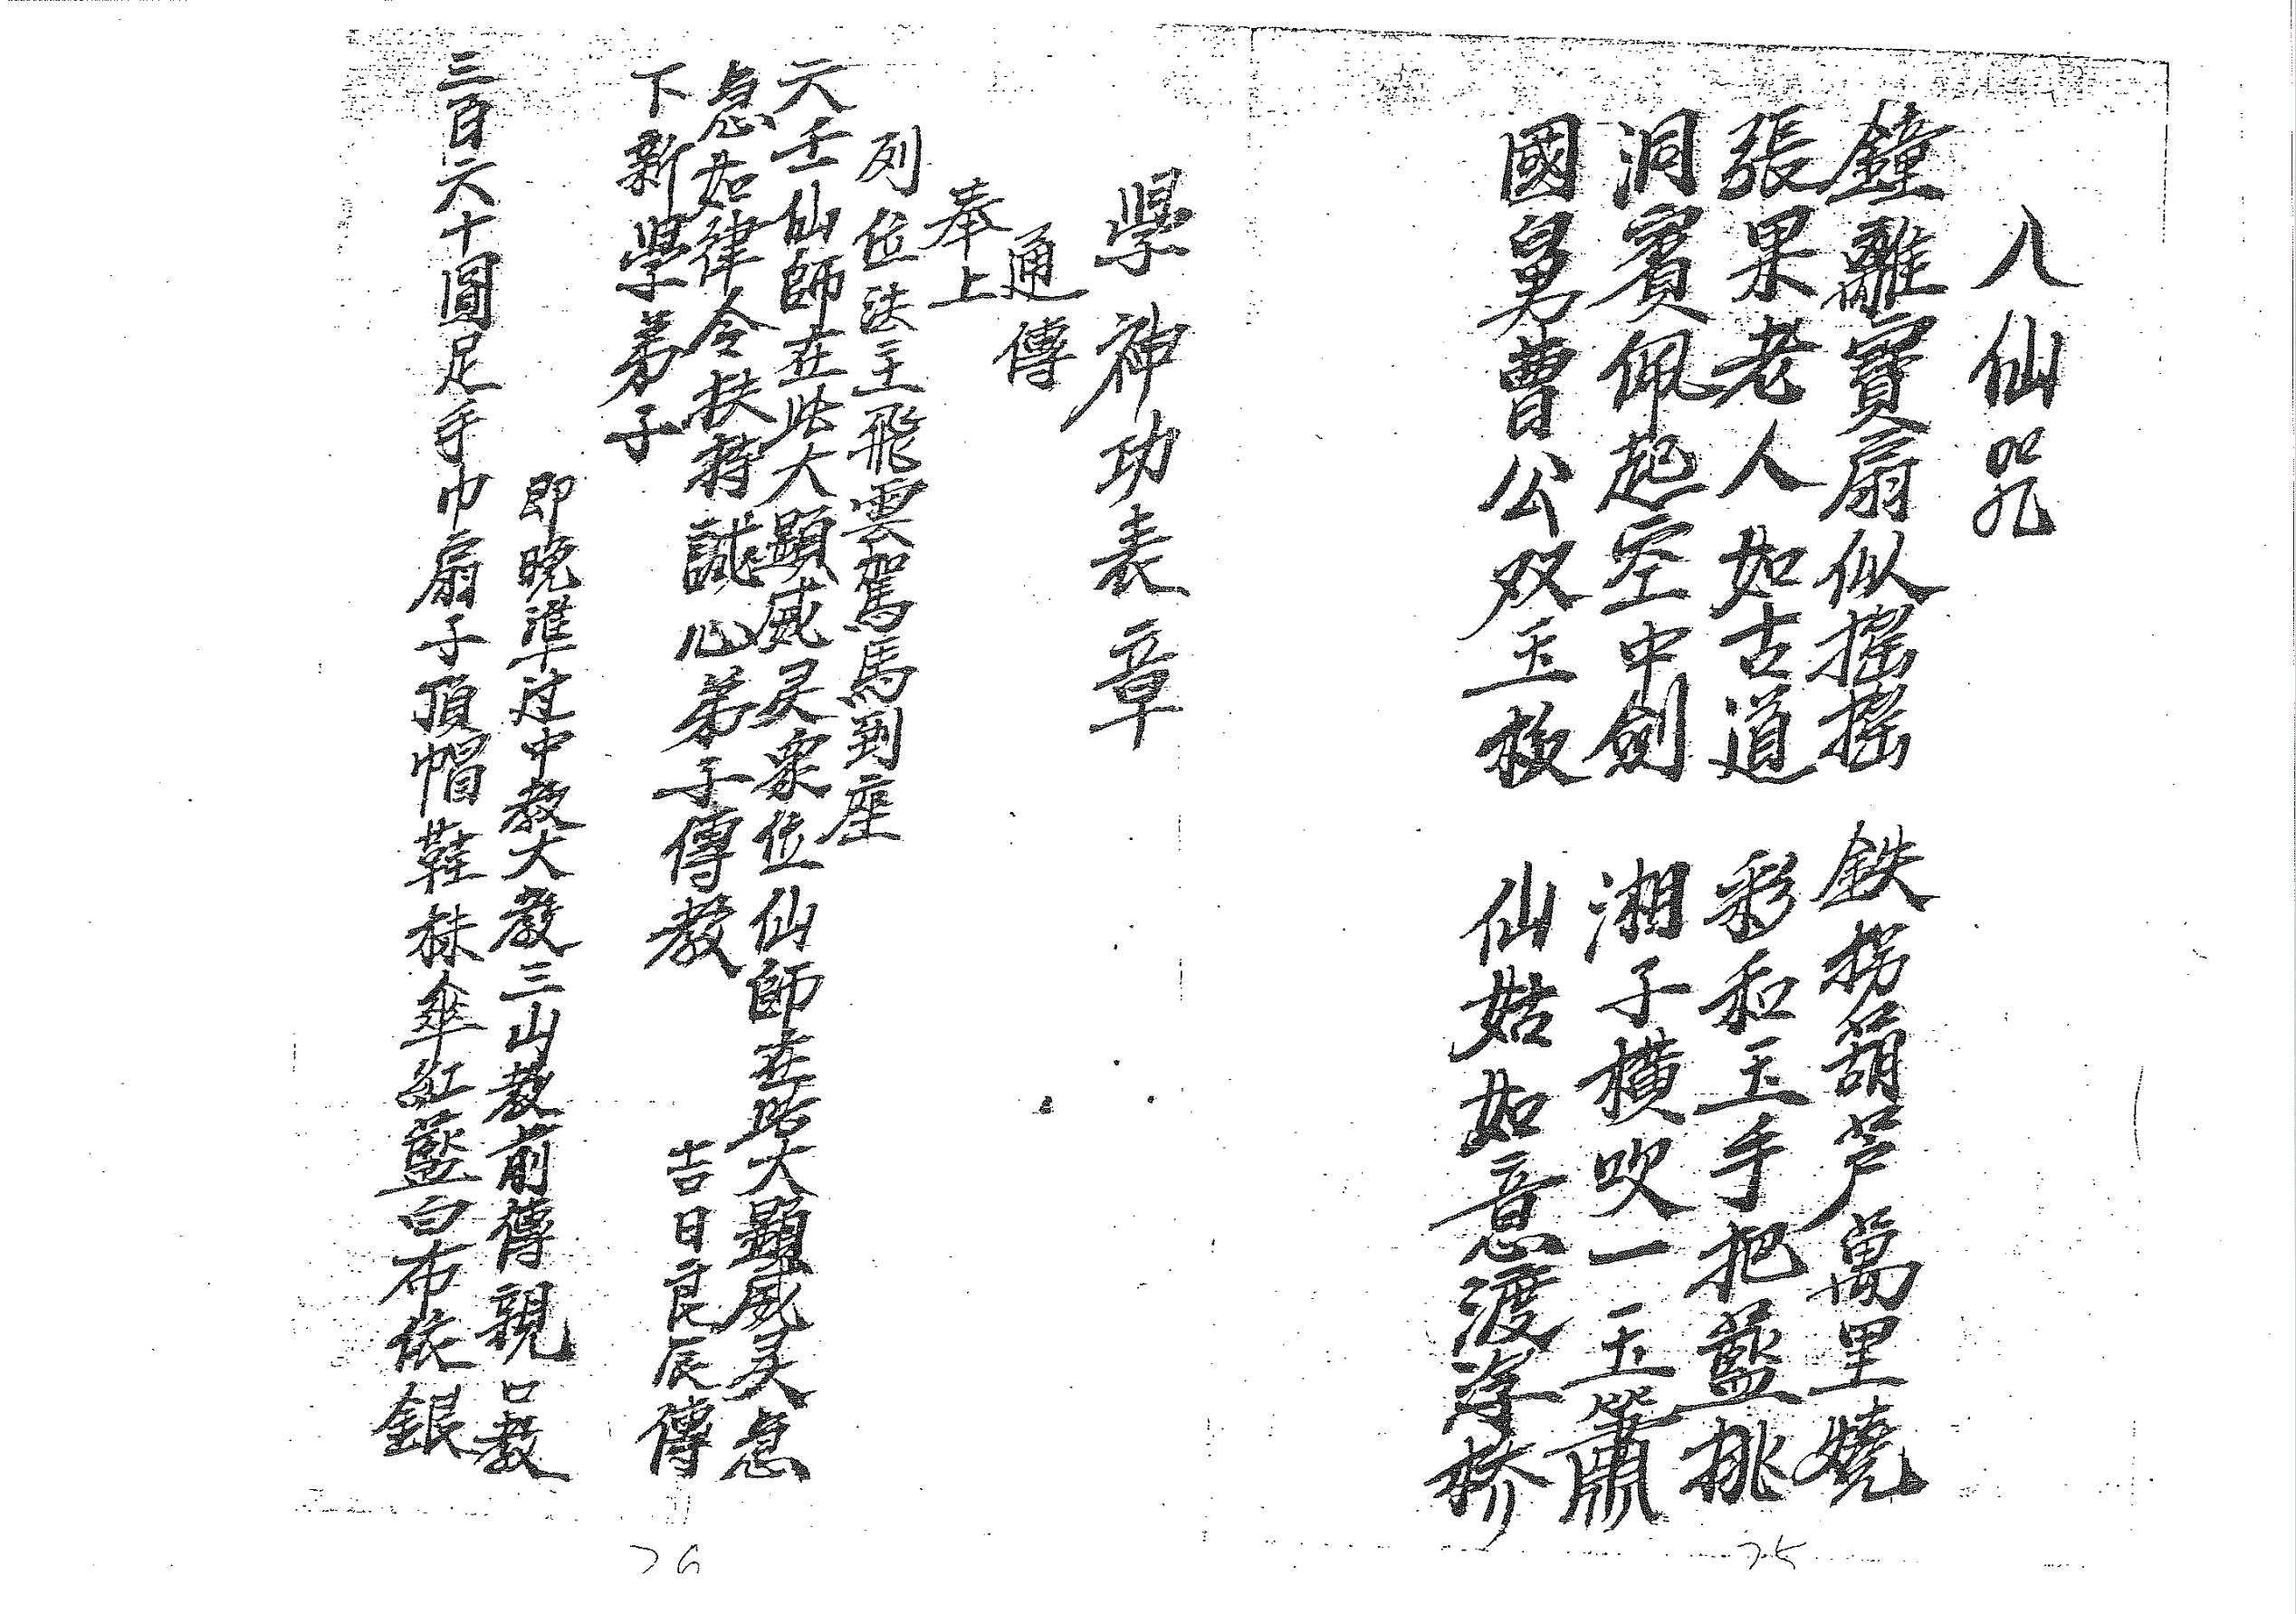 八仙咒
鐘離寶扇似搖搖 鉄拐葫芦萬里燒
張果老人如古道 彩和玉手把藍挑
洞賓佩起空中劍 湘子橫吹一玉簫
國舅曹公双玉板 仙姑如意渡浮桥
25
學神功表章
通傳
奉上
列位法主飛雲駕馬到座
六壬仙師在此大顯威灵眾位仙師在此大顯威灵急
急如律令扶持誠心弟子傳教 吉日良辰傳
下新學弟子
即晚準过中教大教三山教前傳親口教
三百六十圓足手巾扇子頂帽鞋襪傘紅藍白布依銀
26